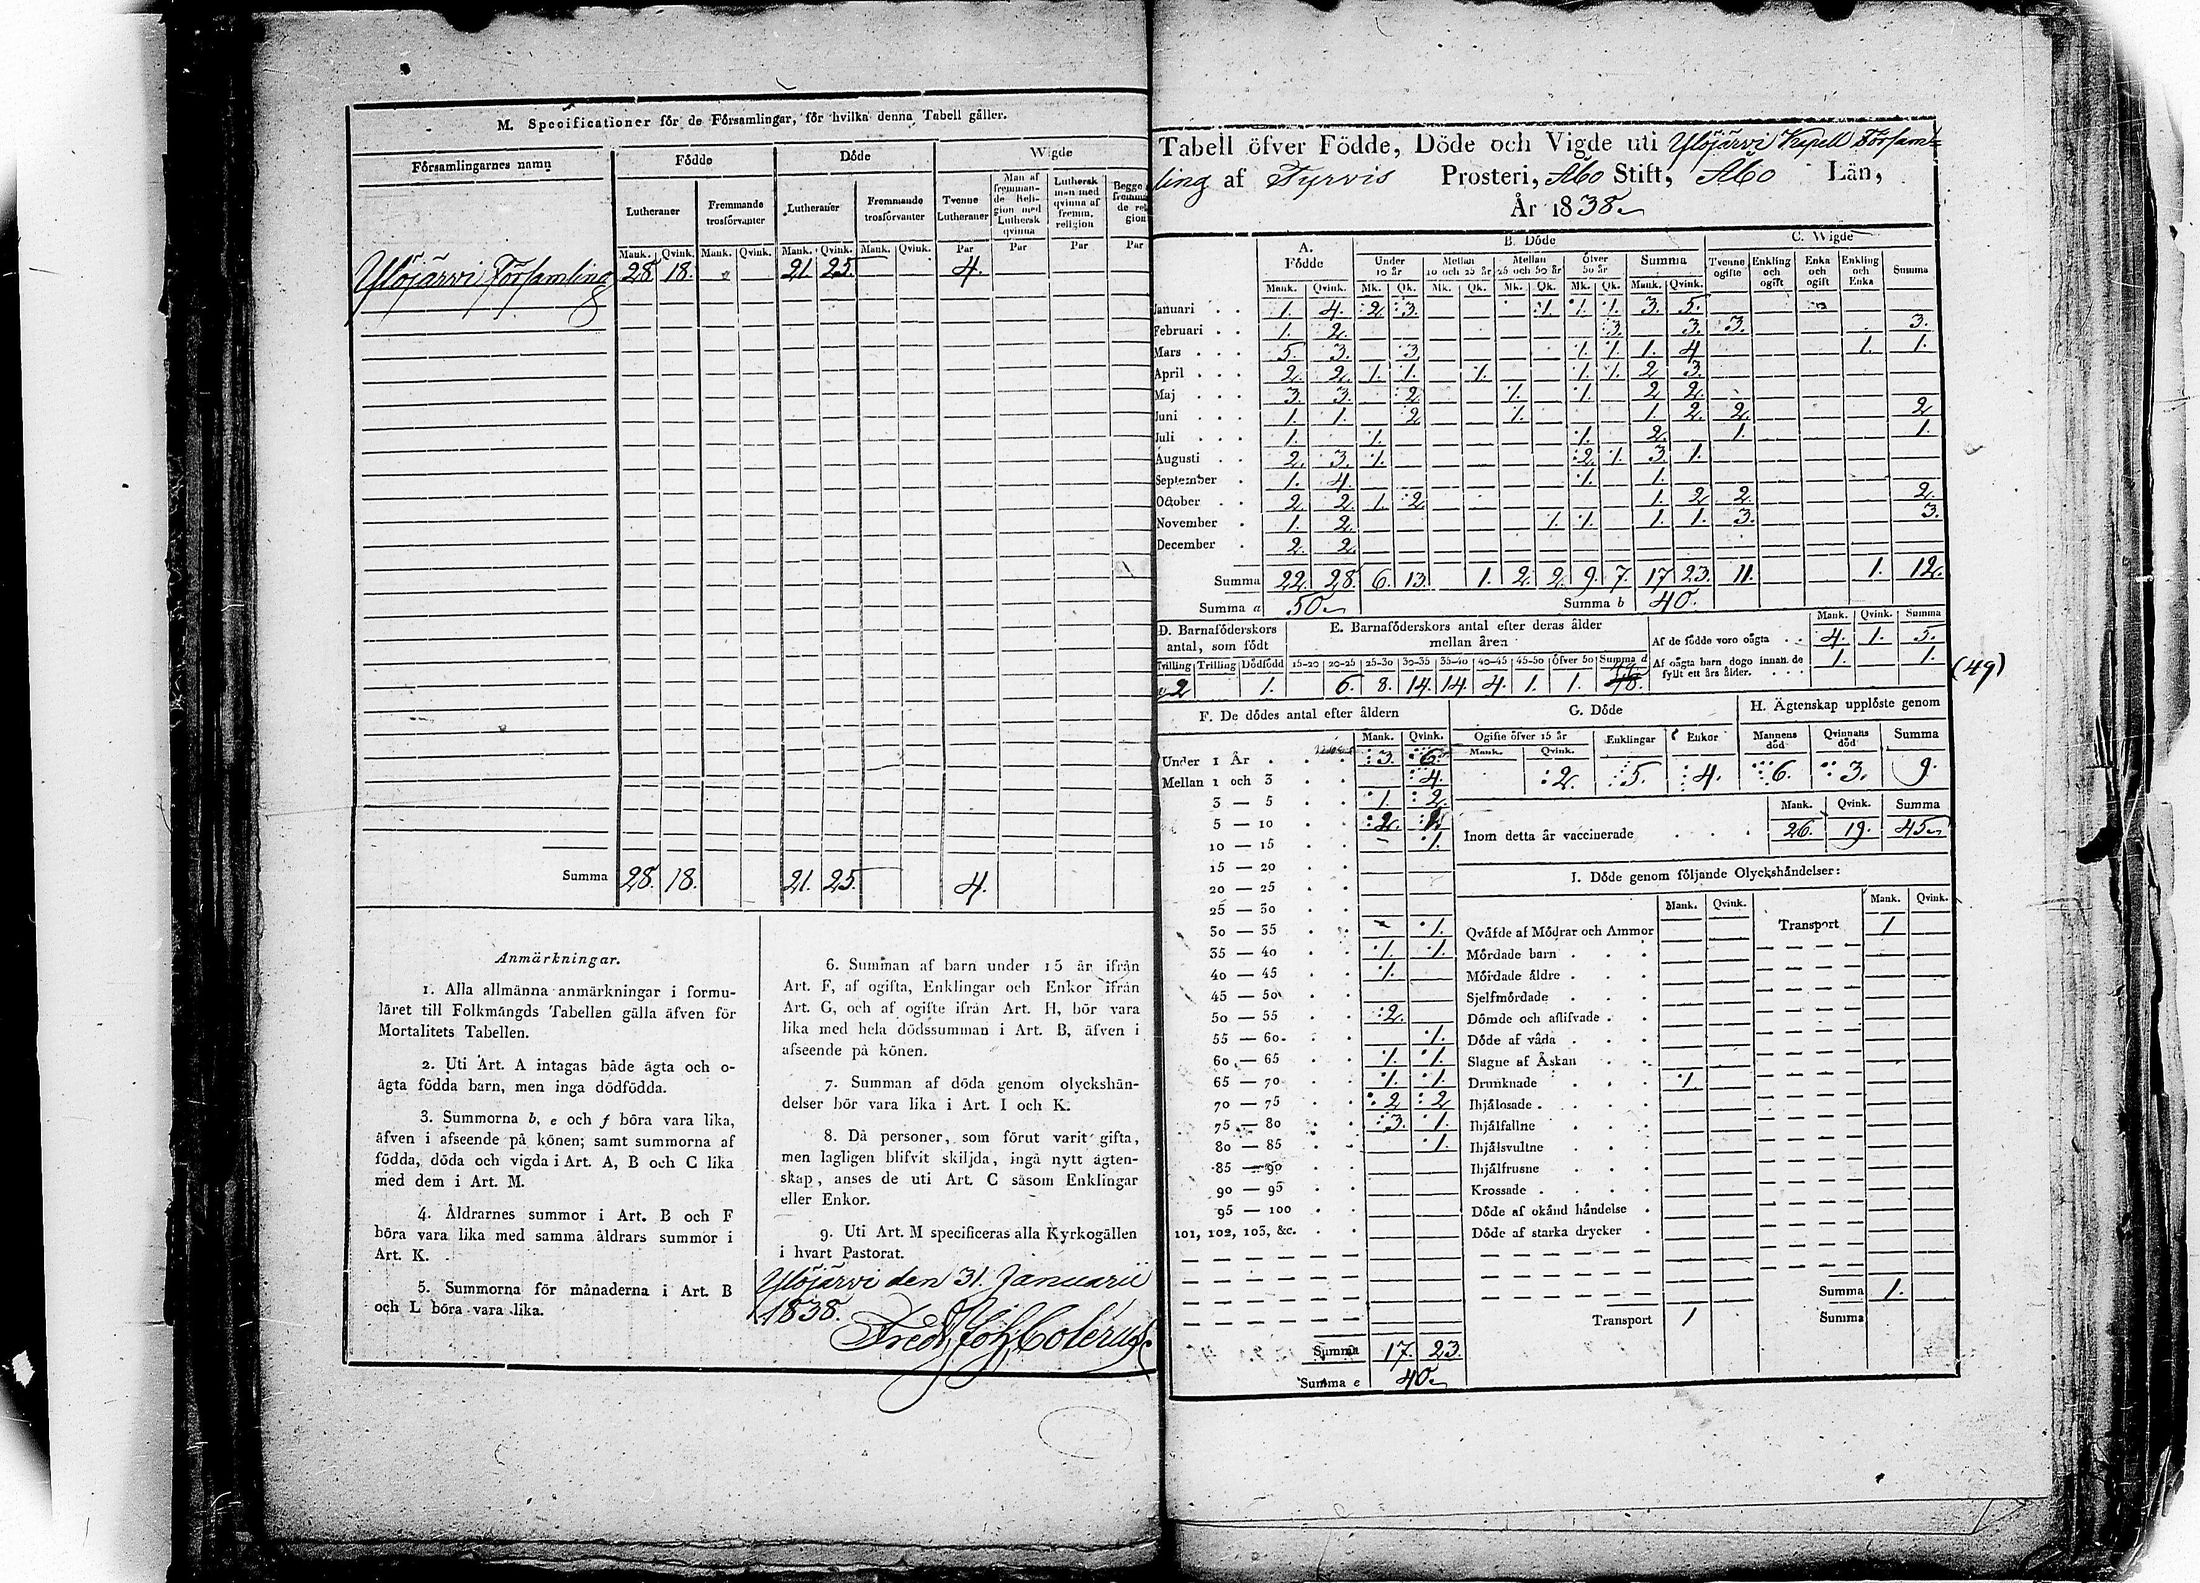 M. Specificationer för de Församlingar, för hvilka denna Tabell gäller.
Församlingarnes namn | Födde | Döde | Wigde
Lutheraner | Fremmande trosförvanter | Lutheraner | Fremmande trosförvanter | Tvenne Lutheraner | Man af fremmande Religion med Luthersk qvinna | Luthersk man med qvinna af fremm. religion | Begge
Mank. | Qvink. | Mank. | Qvink. | Mank. | Qvink. | Mank. | Qvink. | Par | Par | Par | Par
Ylöjärvi Församling | 28. | 18. | 21. | 25. | 4.
Summa | 28. | 18. | 21. | 25. | 4.
Anmärkningar.
1. Alla allmänna anmärkningar i formu-
läret till Folkmängds Tabellen gälla äfven för
Mortalitets Tabellen.
2. Uti Art. A intagas både ägta och o-
ägta födda barn, men inga dödfödda.
3. Summorna b, e och f böra vara lika,
äfven i afseende på könen; samt summorna af
födda, döda och vigda i Art. A, B och C lika
med dem i Art. M.
4. Åldrarnes summor i Art. B och F
böra vara lika med samma åldrars summor i
Art. K.
5. Summorna för månaderna i Art. B
och L böra vara lika.
6. Summan af barn under 15 år ifrån
Art. F, af ogifta, Enklingar och Enkor ifrån
Art. G, och af ogifte ifrån Art. H, bör vara
lika med hela dödssumman i Art. B, äfven i
afseende på könen.
7. Summan af döda genom olyckshän-
delser bör vara lika i Art. I och K.
8. Då personer, som förut varit gifta,
men lagligen blifvit skiljda, ingå nytt ägten-
skap, anses de uti Art. C såsom Enklingar
eller Enkor.
9. Uti Art. M specificeras alla Kyrkogällen
i hvart Pastorat.
Ylöjärvi den 31. Januarii
1838.
Fredr Joh Colerus.
Tabell öfver Födde, Döde och Vigde uti Ylöjärvi Kapell Försam-
ling af Tyrvis Prosteri, Åbo Stift, Åbo Län,
År 1838
A. Födde | B. Döde | C. Wigde
Under 10 år | Mellan 10 och 25 år | Mellan 25 och 50 år | Öfver 50 år | Summa | Tvenne ogifte | Enkling och ogift | Enka och ogift | Enkling och Enka | Summa
Mank. | Qvink. | Mk. | Qk. | Mk. | Qk. | Mk. | Qk. | Mk. | Qk. | Mank. | Qvink.
Januari | 1. | 4. | 2 | 3. | 1. | 1. | 1. | 3. | 5.
Februari | 1. | 2. | 3. | 3. | 3. | 3.
Mars | 5. | 3. | 3 | 1. | 1. | 1. | 4 | 1. | 1.
April | 2. | 2. | 1. | 1. | 1. | 1. | 1. | 2 | 3.
Maj | 3. | 3. | 2 | 1. | 1. | 2 | 2.
Juni | 1. | 1. | 2 | 1. | 1. | 2. | 2. | 2
Juli | 1. | 1. | 1. | 2. | 1. | 1.
Augusti | 2. | 3. | 1. | 2. | 1. | 3. | 1.
September | 1. | 4. | 1. | 1.
October | 2. | 2. | 1. | 2. | 1. | 2 | 2. | 2.
November | 1. | 2. | 1. | 1. | 1. | 1. | 3. | 3.
December | 2. | 2.
Summa | 22. | 28. | 6. | 13. | 1. | 2. | 2. | 9. | 7. | 17 | 23. | 11. | 1. | 12.
Summa a | 50 | Summa b | 40.
D. Barnaföderskors antal, som födt
Tvilling | Trilling | Dödfödd
2 | 1.
E. Barnaföderskors antal efter deras ålder mellan åren
15-20 | 20-25 | 25-30 | 30-35 | 35-40 | 40-45 | 45-50 | öfver 50 | Summa d
6. | 8. | 14. | 14. | 4. | 1. | 1. | 48.
Mank. | Qvink. | Summa
Af de födde voro oägta | 4. | 1. | 5.
Af oägta barn dogo innan de fyllt ett års ålder. | 1. | 1.
(49)
F. De dödes antal efter åldern
Mank. | Qvink.
Under 1 År | 3. | 6.
Mellan 1 och 3 | 4.
3 — 5 | 1. | 2.
5 — 10 | 2.
10 — 15 | 1.
15 — 20
20 — 25
25 — 30
30 — 35 | 1.
35 — 40 | 1. | 1.
40 — 45 | 1.
45 — 50
50 — 55 | 2.
55 — 60 | 1.
60 — 65 | 1. | 1.
65 — 70 | 1. | 1.
70 — 75 | 2 | 2
75 — 80 | 3. | 1.
80 — 85 | 1.
85 — 90
90 — 95
95 — 100
101, 102, 103, &c.
Summa | 17. | 23.
Summa e | 40
G. Döde
Ogifte öfver 15 år | Enklingar | Enkor
Mank. | Qvink.
2. | 5. | 4.
H. Ägtenskap upplöste genom
Mannens död | Qvinnans död | Summa
6. | 3. | 9.
Mank. | Qvink. | Summa
Inom detta år vaccinerade | 26. | 19. | 45
I. Döde genom följande Olyckshändelser:
Mank. | Qvink. | Mank. | Qvink.
Qväfde af Mödrar och Ammor | Transport | 1
Mördade barn
Mördade äldre
Sjelfmördade
Dömde och aflifvade
Döde af våda
Slagne af Åskan
Drunknade | 1.
Ihjälosade
Ihjälfallne
Ihjälsvultne
Ihjälfrusne
Krossade
Döde af okänd händelse
Döde af starka drycker
Summa | 1.
Transport | 1 | Summa